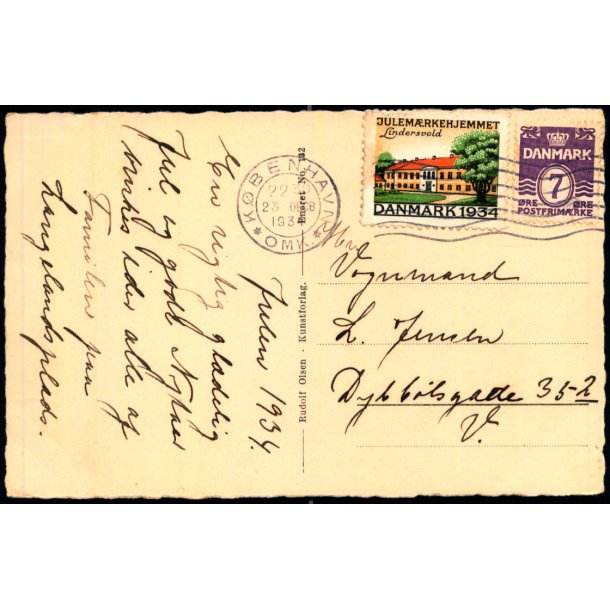 Julen 1934.
En rigtig glædelig
Jul og godt Nytaar
ønskes eder alle af
Familien paa
Langelandsplads.
Eneret No. 132
Rudolf Olsen - Kunstforlag.
KØBENHAVN
22
23 DECB
1934
OMK.
JULEMÆRKEHJEMMET
Lindersvold
DANMARK 1934
DANMARK
7
ØRE ØRE
POSTFRIMÆRKE
Vognmand
L. Jensen
Dybbølsgade 35-2
V.